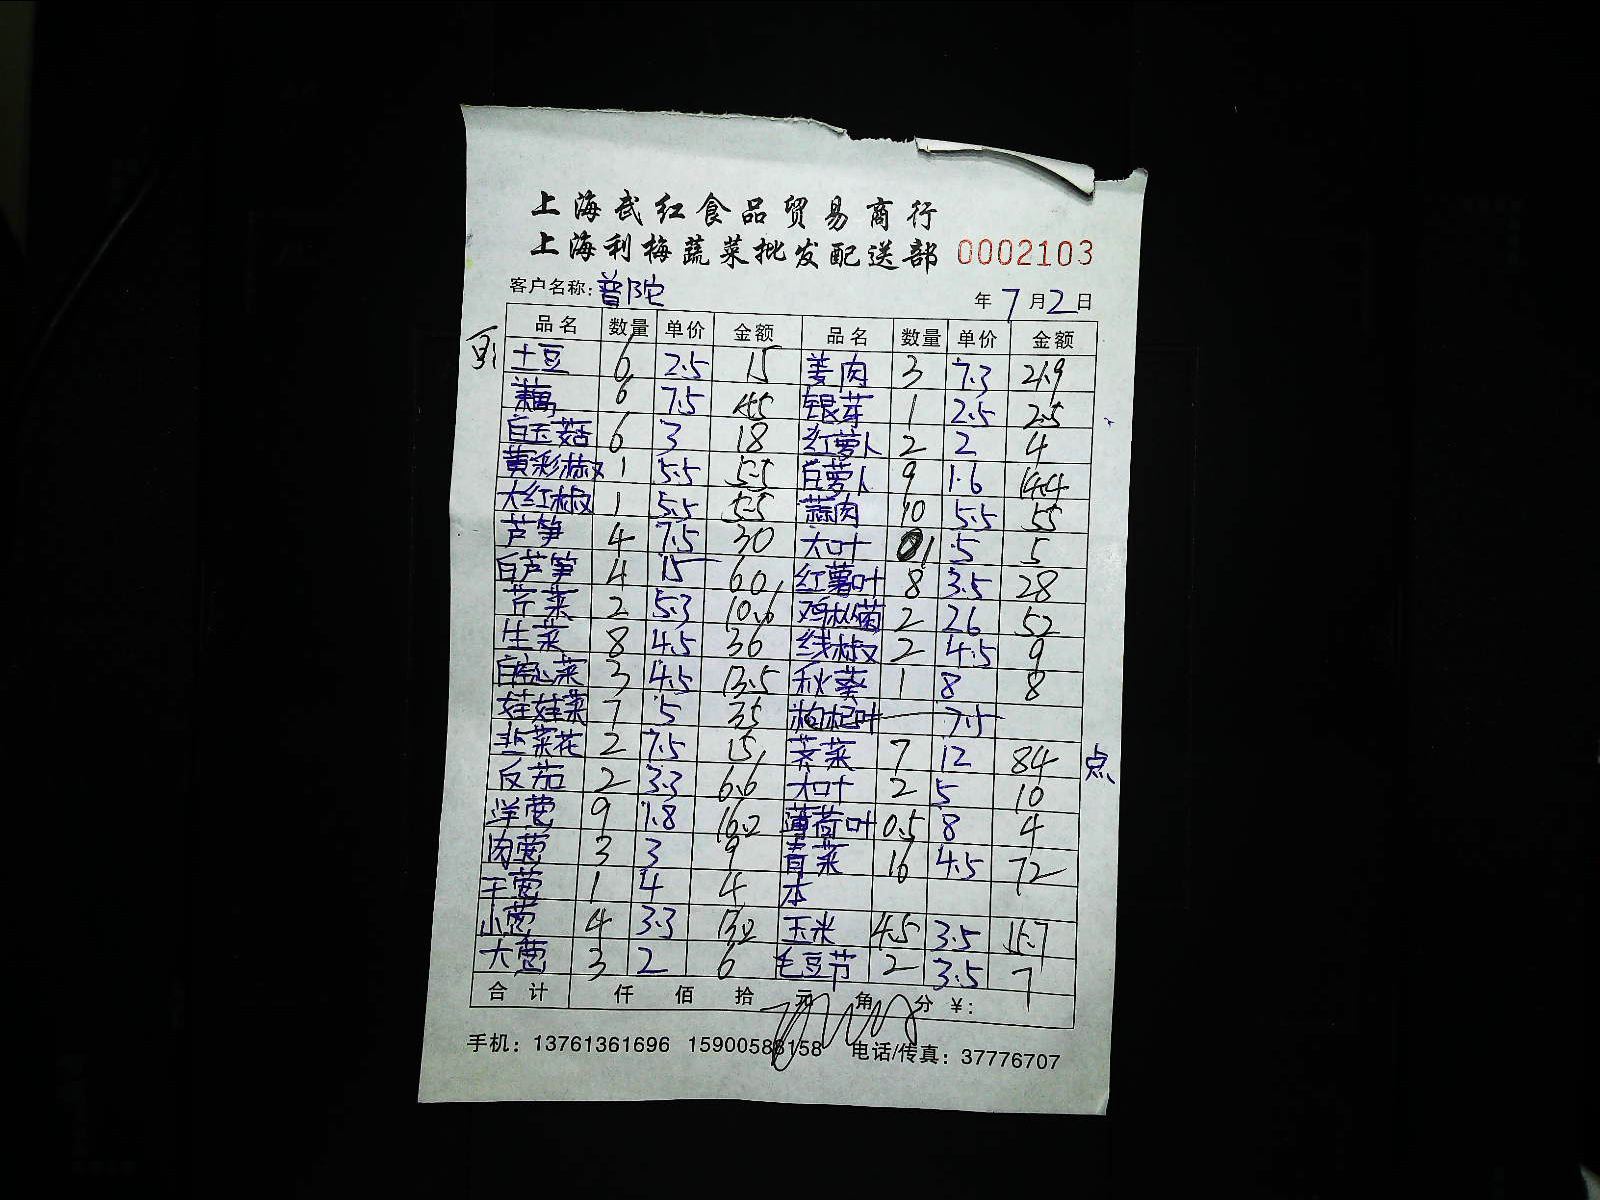 上海武红食品贸易商行
上海利梅蔬菜批发配送部 0002103
客户名称: 普陀 年 7 月 2 日
品名 数量 单价 金额 品名 数量 单价 金额
土豆 6 2.5 15 姜肉 3 7.3 21.9
藕 6 7.5 45 银芽 1 2.5 2.5
白玉菇 6 3 18 红萝卜 2 2 4
黄彩椒 1 5.5 5.5 白萝卜 9 1.6 14.4
大红椒 1 5.5 5.5 蒜肉 10 5.5 55
芦笋 4 7.5 30 大叶 1 5 5
白芦笋 4 15 60 红薯叶 8 3.5 28
芹菜 2 5.3 10.6 鸡枞菌 2 26 52
生菜 8 4.5 36 线椒 2 4.5 9
白心菜 3 4.5 13.5 秋葵 1 8 8
娃娃菜 7 5 35 枸杞叶 7.5
韭菜花 2 7.5 15 荠菜 7 12 84 点
反茄 2 3.3 6.6 大叶 2 5 10
洋葱 9 1.8 16.2 薄荷叶 0.5 8 4
肉葱 3 3 9 青菜 16 4.5 72
干葱 1 4 4 本
小葱 4 3.3 13.2 玉米 4.5 3.5 15.7
大葱 3 2 6 毛豆节 2 3.5 7
合计 仟 佰 拾 元 角 分 ¥:
手机: 13761361696 15900588158 电话/传真: 37776707